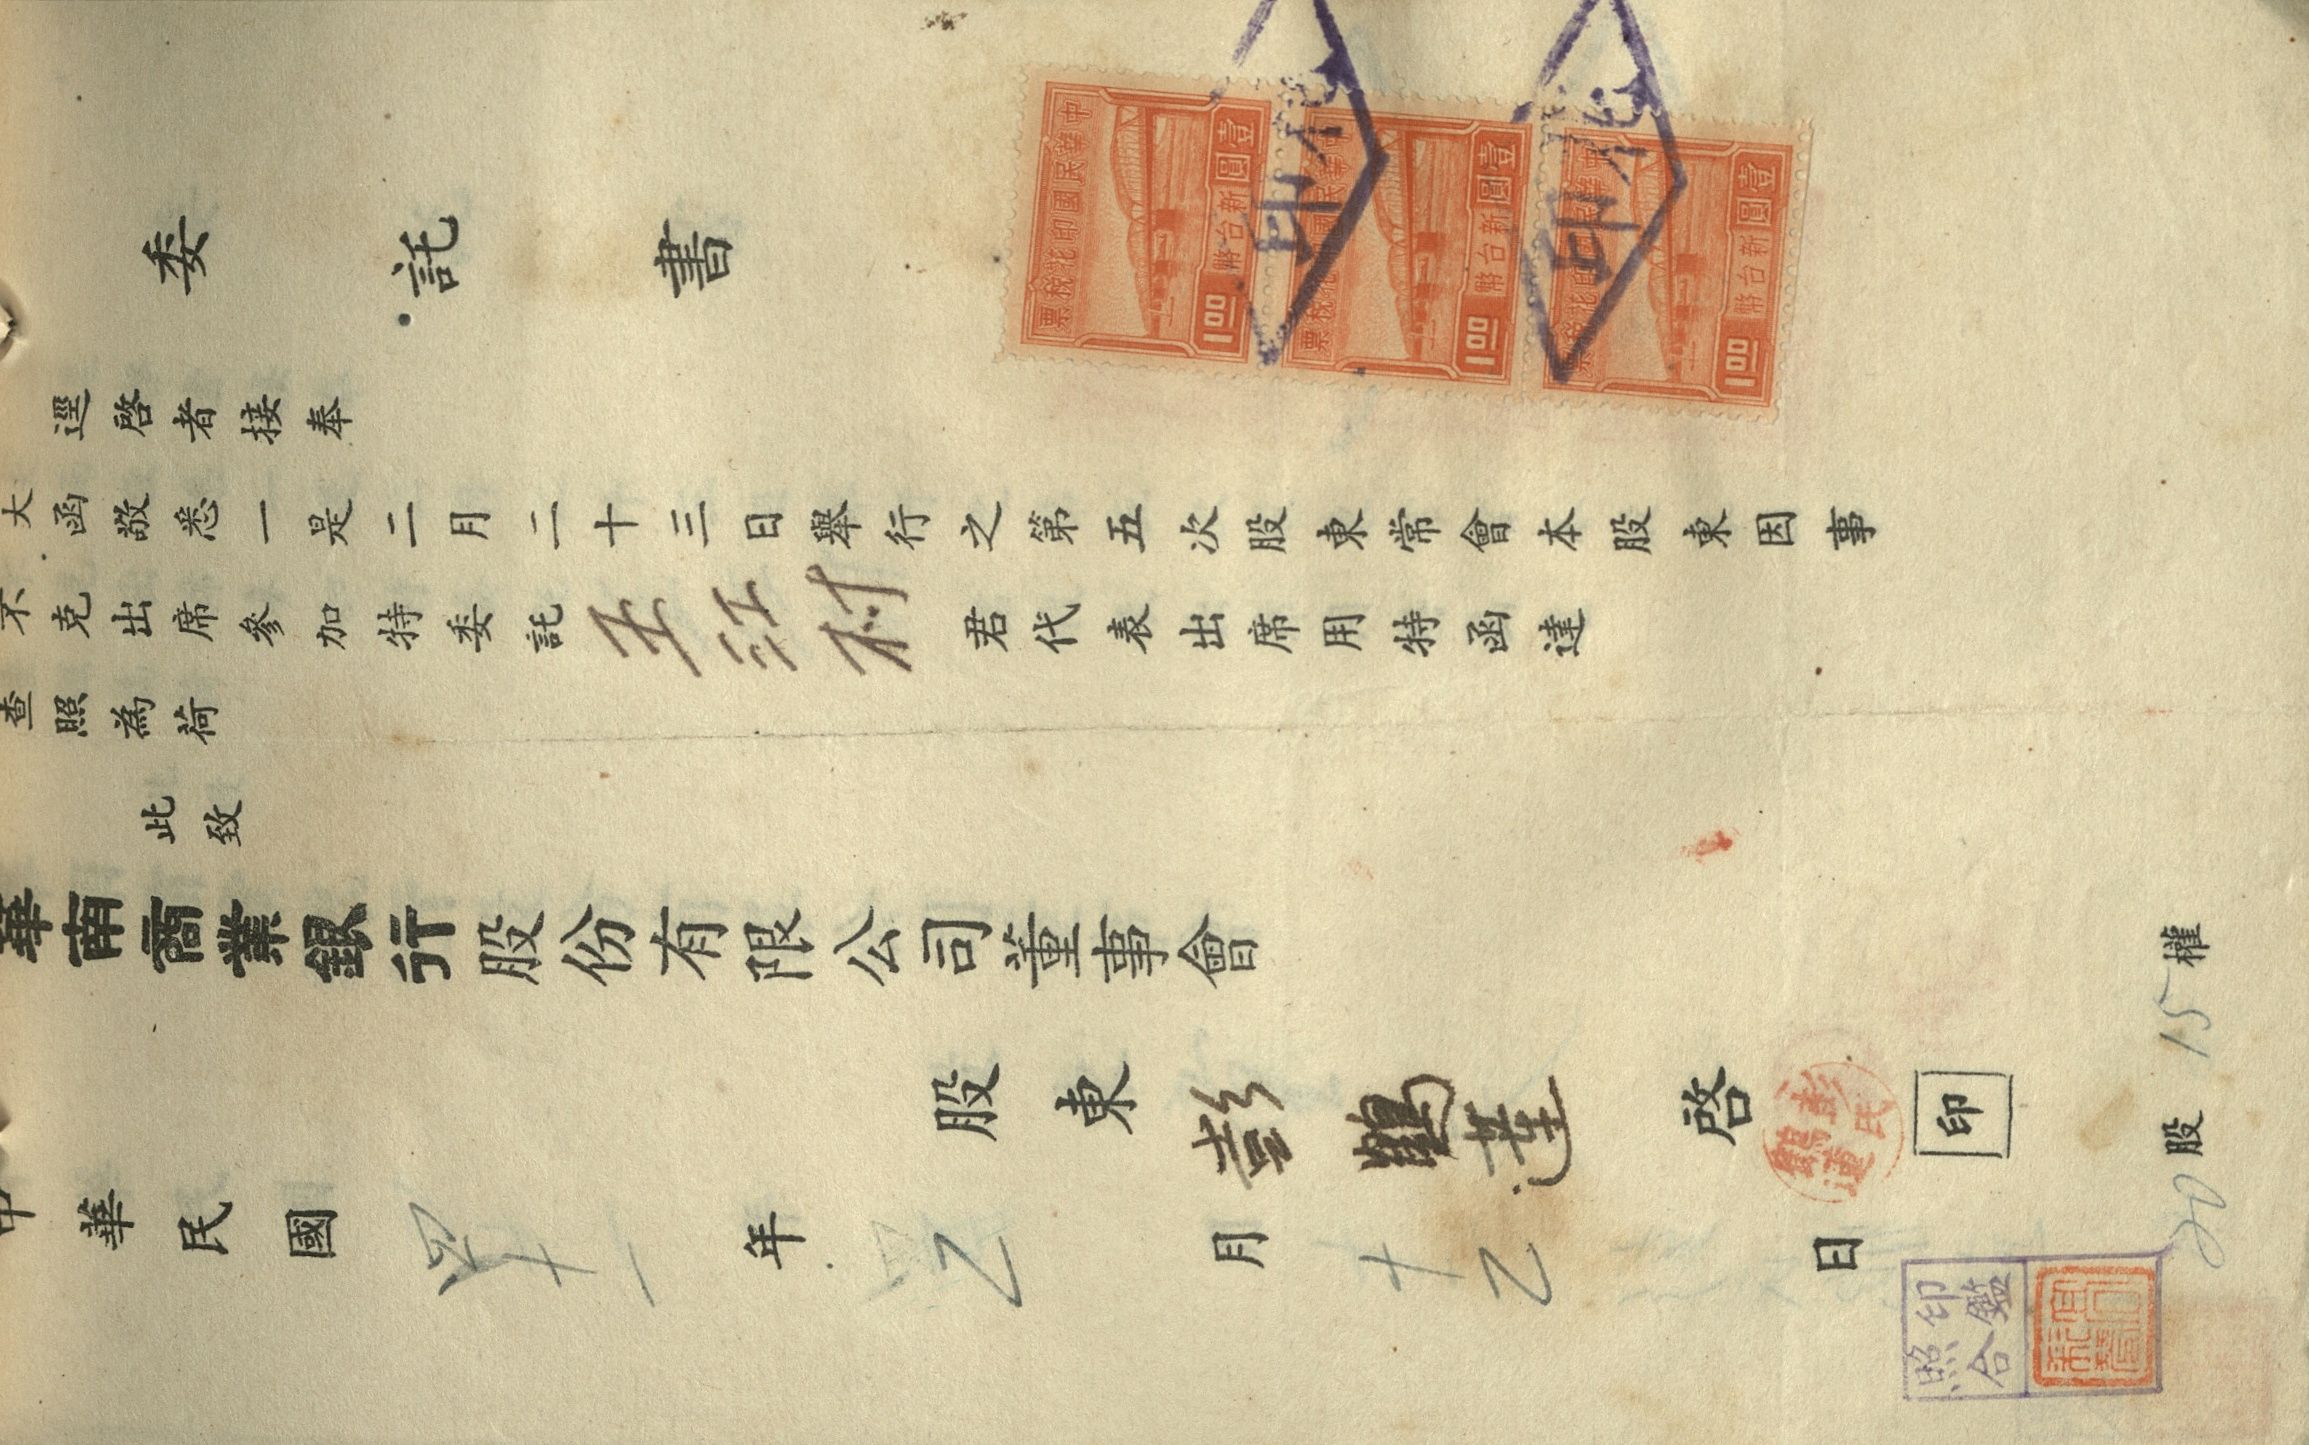 委託書
逕啓者接奉
大函敬悉一是二月二十三日舉行之第五次股東常會本股東因事
不克出席參加特委託王江村君代表出席用特函達
查照為荷
此致
華南商業銀行股份有限公司董事會
股東彭鶴蓮啓 印
中華民國四十一年乙月十乙日
20股15權
中華民國印花稅票
壹圓新台幣
1.00
中華民國印花稅票
壹圓新台幣
1.00
中華民國印花稅票
壹圓新台幣
1.00
印花
印花
印鑑
照合